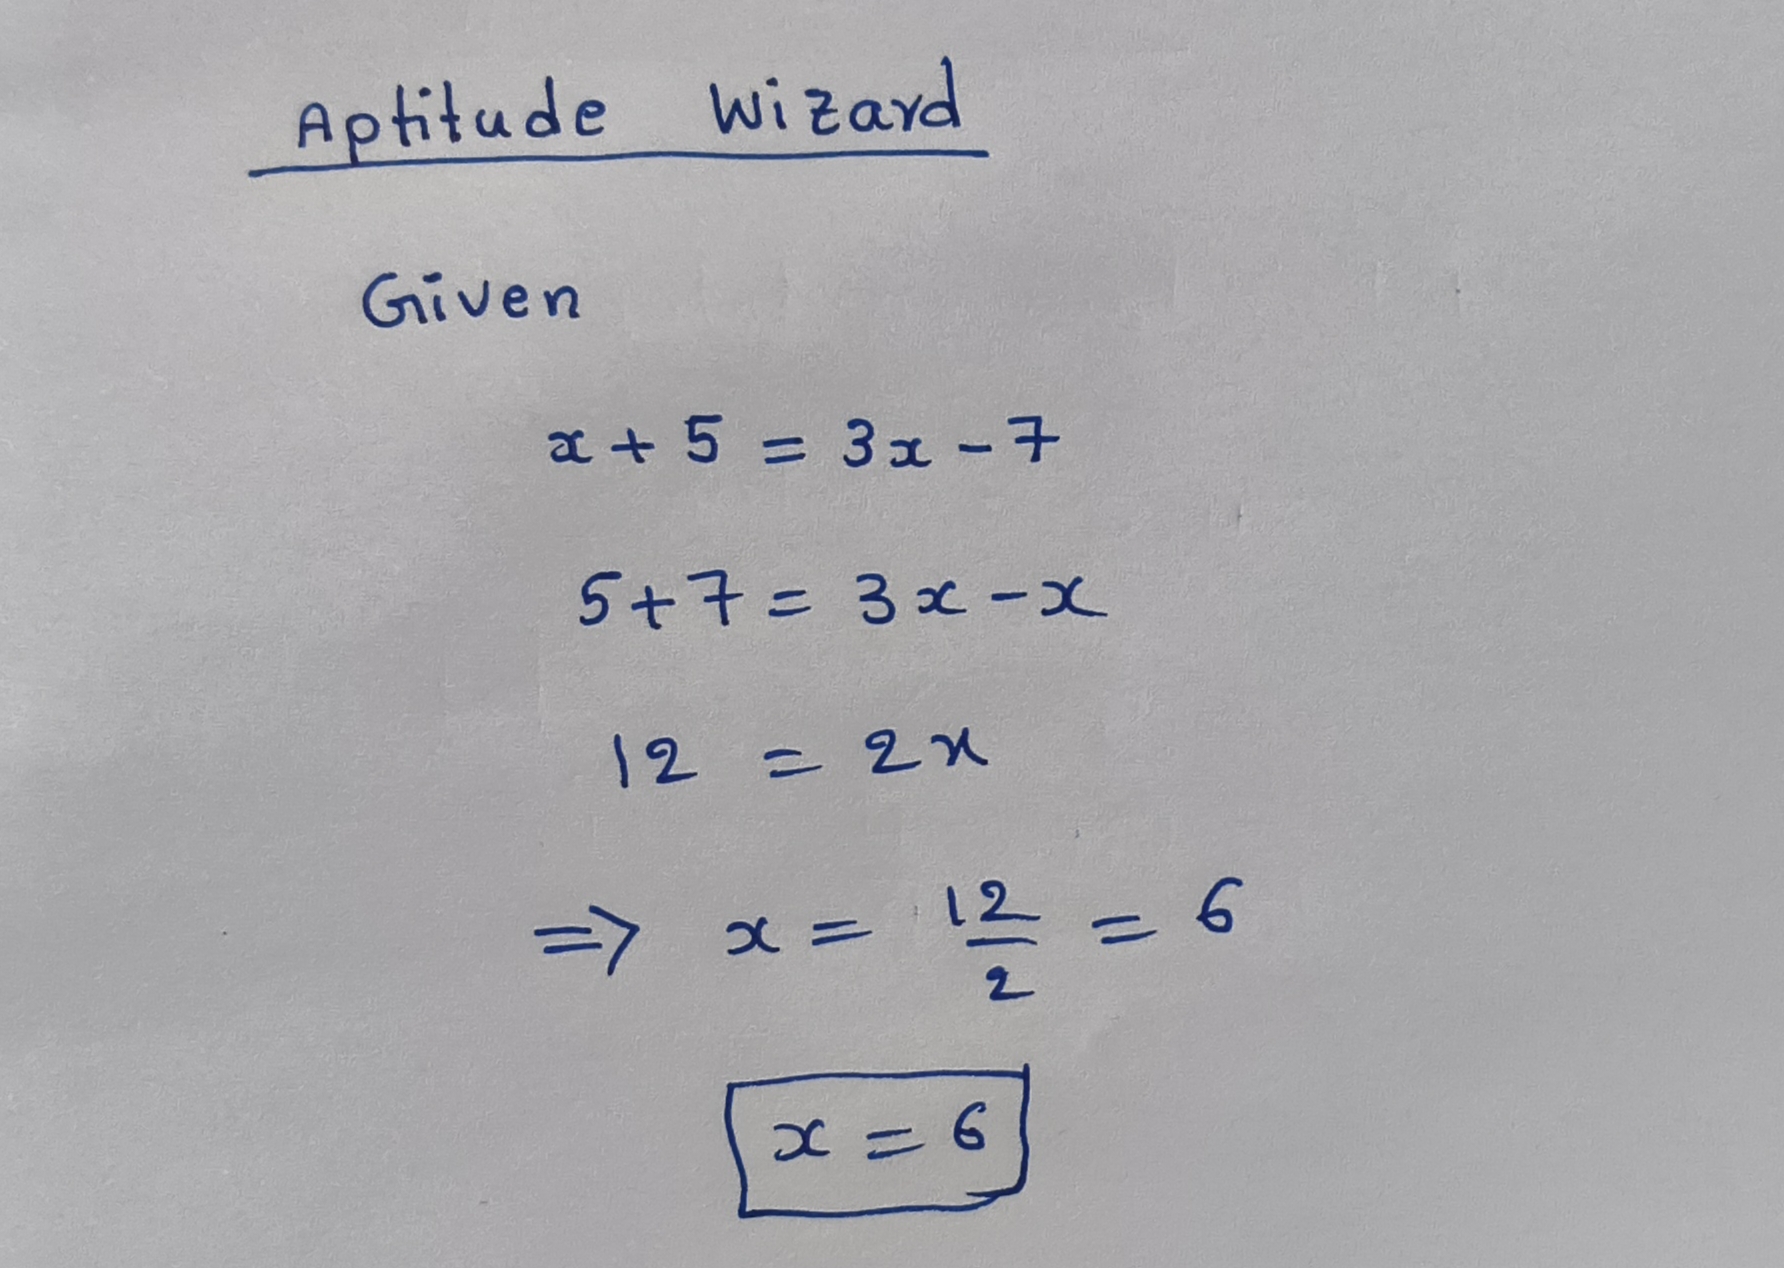 Aptitude Wizard
Given
x + 5 = 3x - 7
5 + 7 = 3x - x
12 = 2x
=> x = 12/2 = 6
x = 6